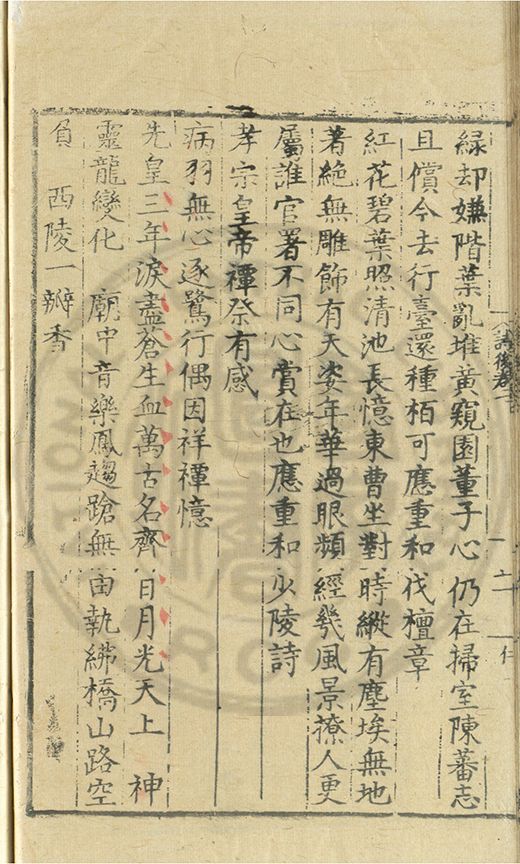 緑却嫌階葉亂堆黃窺園董子心仍在掃室陳蕃志
且償今去行臺還種栢可應重和伐檀章
紅花碧葉照清池長憶東曹坐對時縱有塵埃無地
著絶無雕飾有天姿年華過眼頻經幾風景撩人更
屬誰官署不同心賞在也應重和少陵詩
孝宗皇帝禫祭有感
病羽無心逐鷺行偶因祥禫憶
先皇三年淚盡蒼生血萬古名齊日月光天上 神
靈龍變化 廟中音樂鳳趨蹌無由執紼橋山路空
負 西陵一瓣香